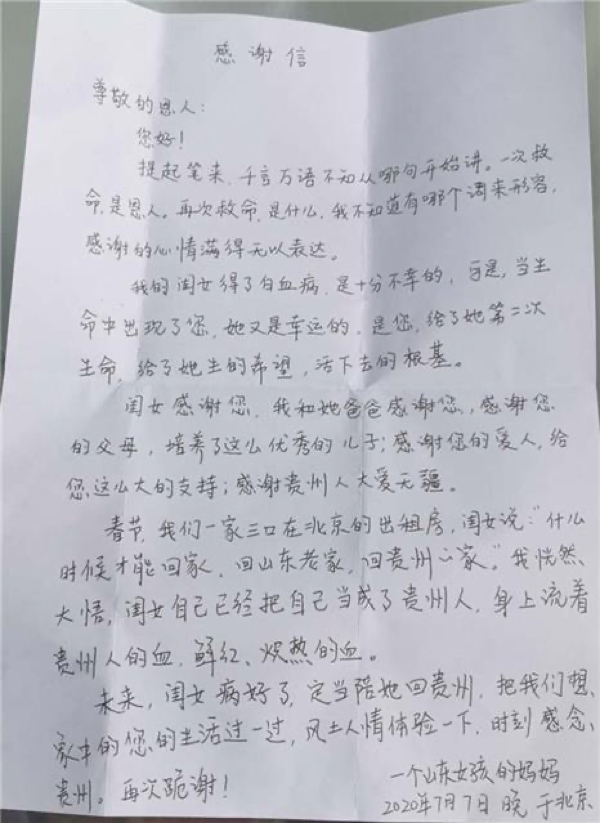 感谢信
尊敬的恩人：
您好！
提起笔来，千言万语不知从哪句开始讲。一次救
命，是恩人。再次救命，是什么，我不知道有哪个词来形容，
感谢的心情满得无以表达。
我的闺女得了白血病，是十分不幸的，于是，当生
命中出现了您，她又是幸运的，是您，给了她第二次
生命，给了她生的希望，活下去的根基。
闺女感谢您，我和她爸爸感谢您，感谢您
的父母，培养了这么优秀的儿子；感谢您的爱人，给
您这么大的支持；感谢贵州人大爱无疆。
春节，我们一家三口在北京的出租房，闺女说：“什么
时候才能回家，回山东老家，回贵州的家。”我恍然
大悟，闺女自己已经把自己当成了贵州人，身上流着
贵州人的血，鲜红、炽热的血。
未来，闺女病好了，定当陪她回贵州，把我们想
象中的您的生活过一过，风土人情体验一下，时刻感念
贵州。再次跪谢！
一个山东女孩的妈妈
2020年7月7日晚 于北京